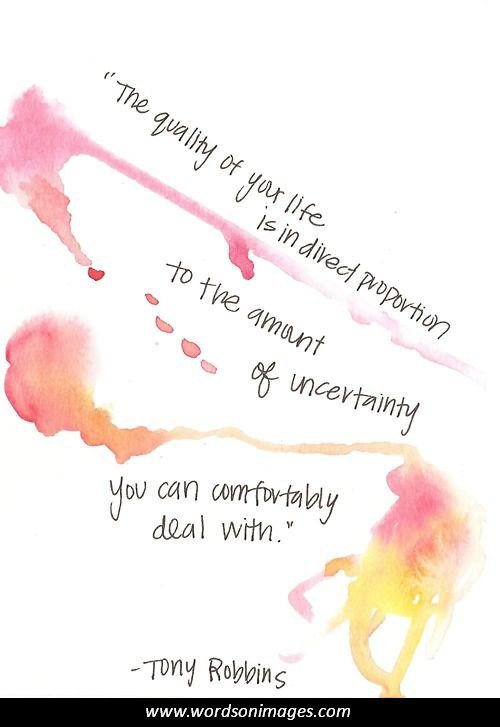 "The quality of your life
is in direct proportion
to the amount
of uncertainty
you can comfortably
deal with."
-Tony Robbins
www.wordsonimages.com